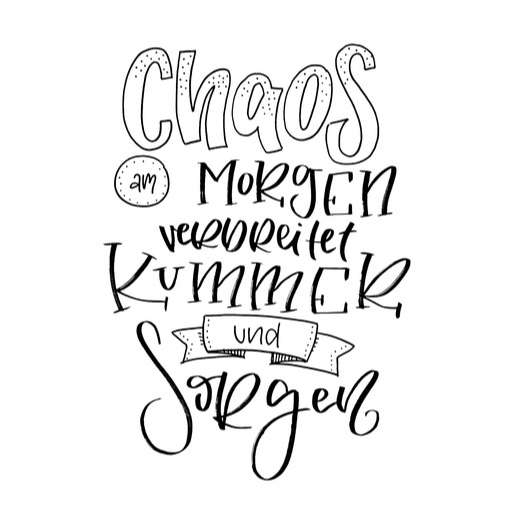 Chaos
am MORGEN
verbreitet
KUMMER
und
Sorgen